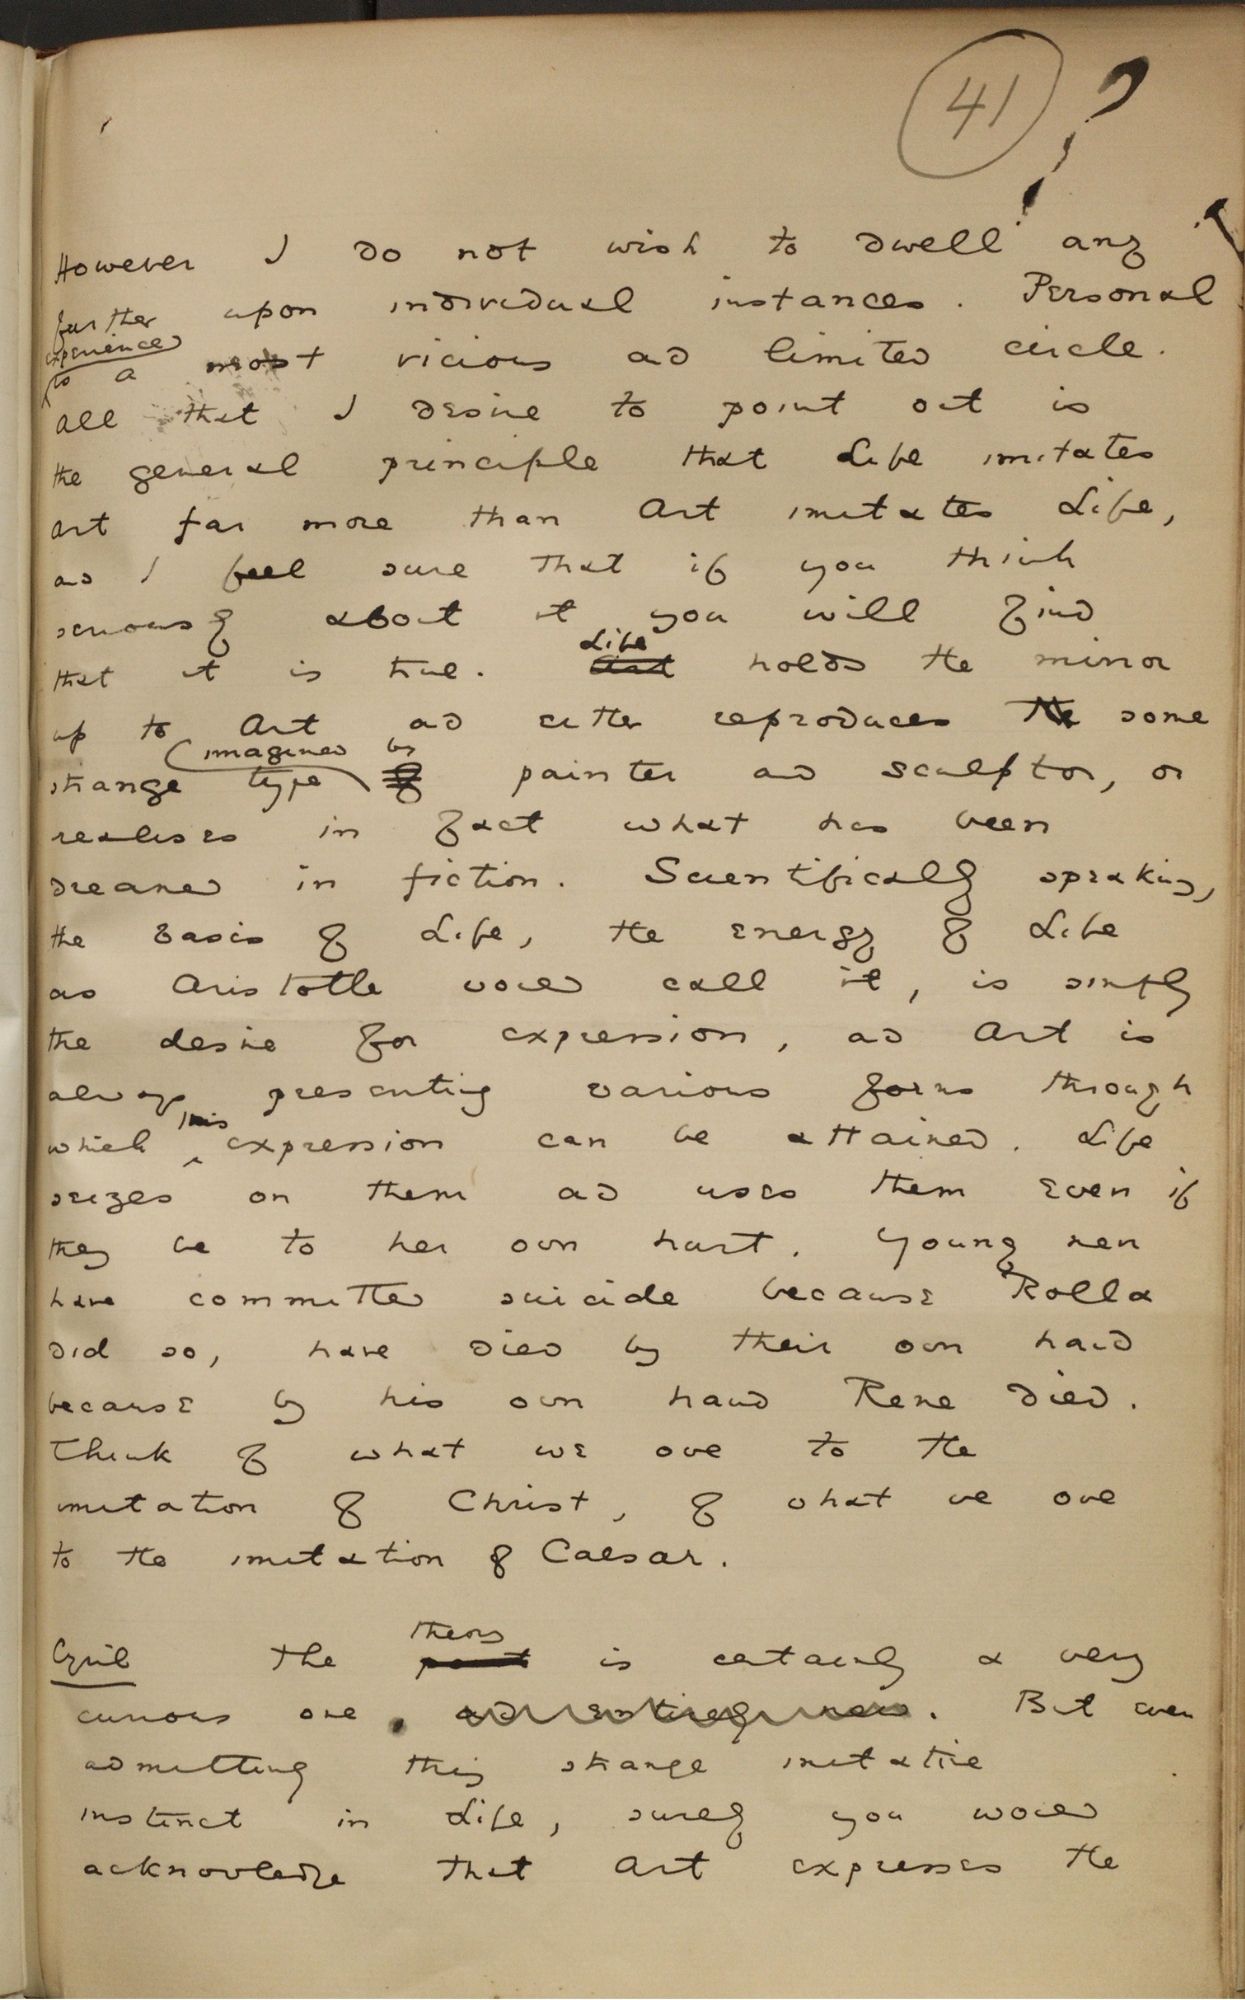 41 ?
However I do not wish to dwell any
further upon individual instances. Personal
experience
is a most vicious and limited circle.
All that I desire to point out is
the general principle that Life imitates
Art far more than Art imitates Life,
and I feel sure that if you think
seriously about it you will find
that it is true. Life Art holds the mirror
up to Art and either reproduces the some
imagined by
strange type of painter and sculptor, or
realises in fact what has been
dreamed in fiction. Scientifically speaking,
the basis of Life, the energy of Life
as Aristotle would call it, is simply
the desire for expression, and Art is
always presenting various forms through
which this expression can be attained. Life
seizes on them and uses them even if
they be to her own hurt. Young men
have committed suicide because Rolla
did so, have died by their own hand
because by his own hand Rene died.
Think of what we owe to the
imitation of Christ, of what we owe
to the imitation of Caesar.
theory
Cyril The point is certainly a very
curious one, and entirely new. But even
admitting this strange imitative
instinct in Life, surely you would
acknowledge that Art expresses the